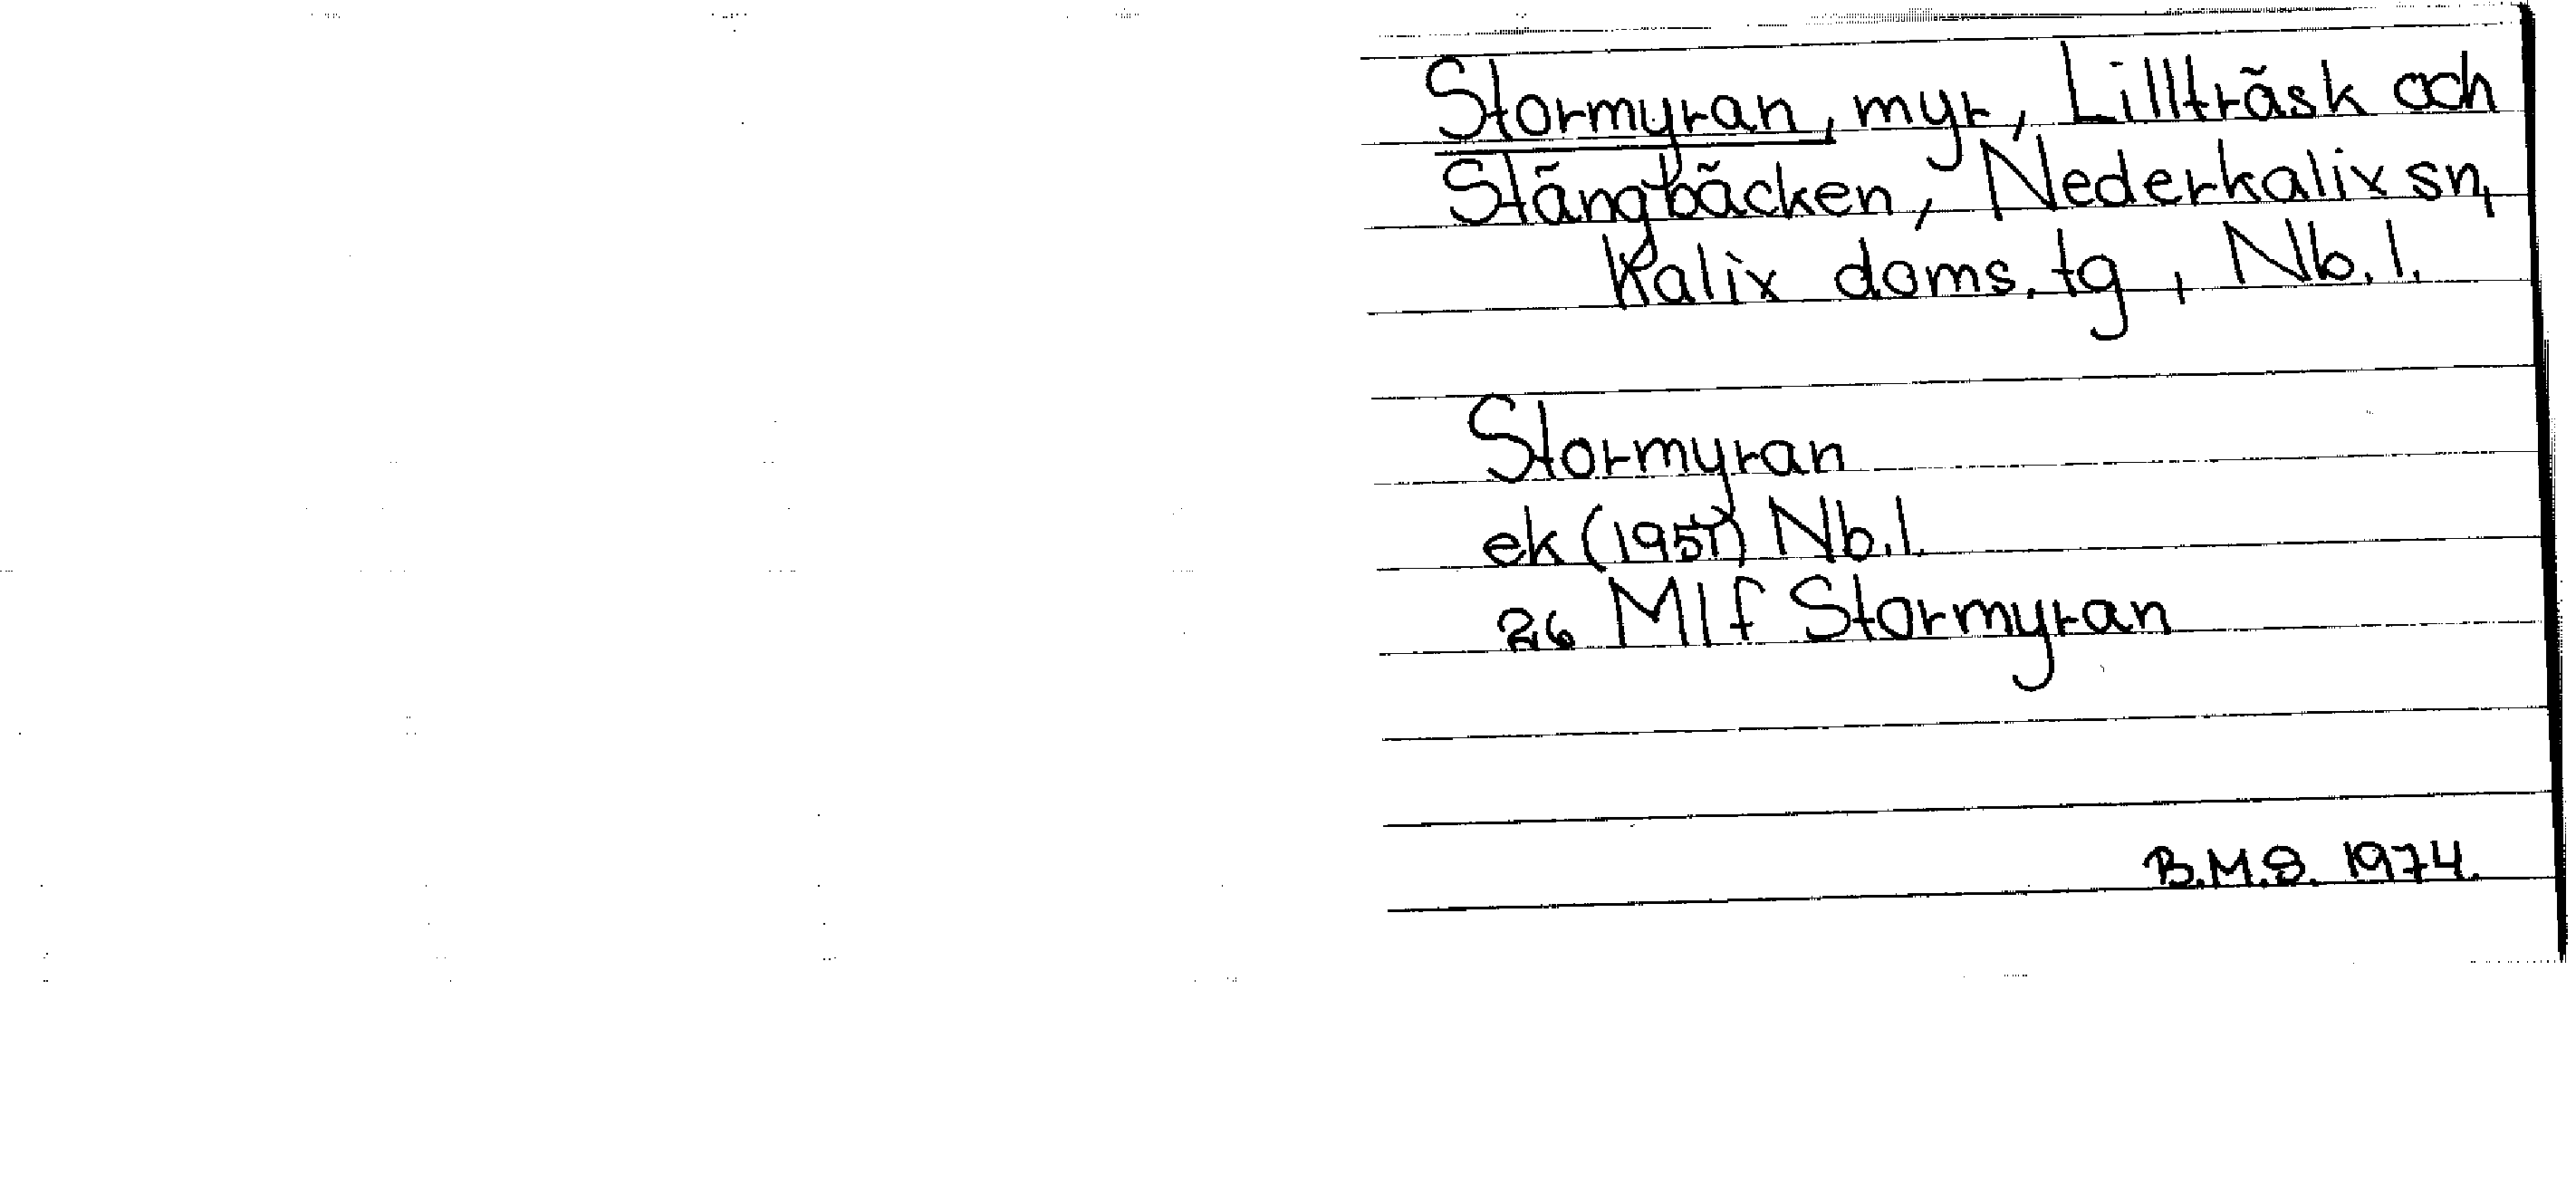 Stormyran, myr, Lillträsk och
Stängbäcken, Nederkalix sn,
Kalix doms. tg, Nb. l.
Stormyran
ek (1951) Nb. l.
26 Mlf Stormyran
B.M.S. 1974.